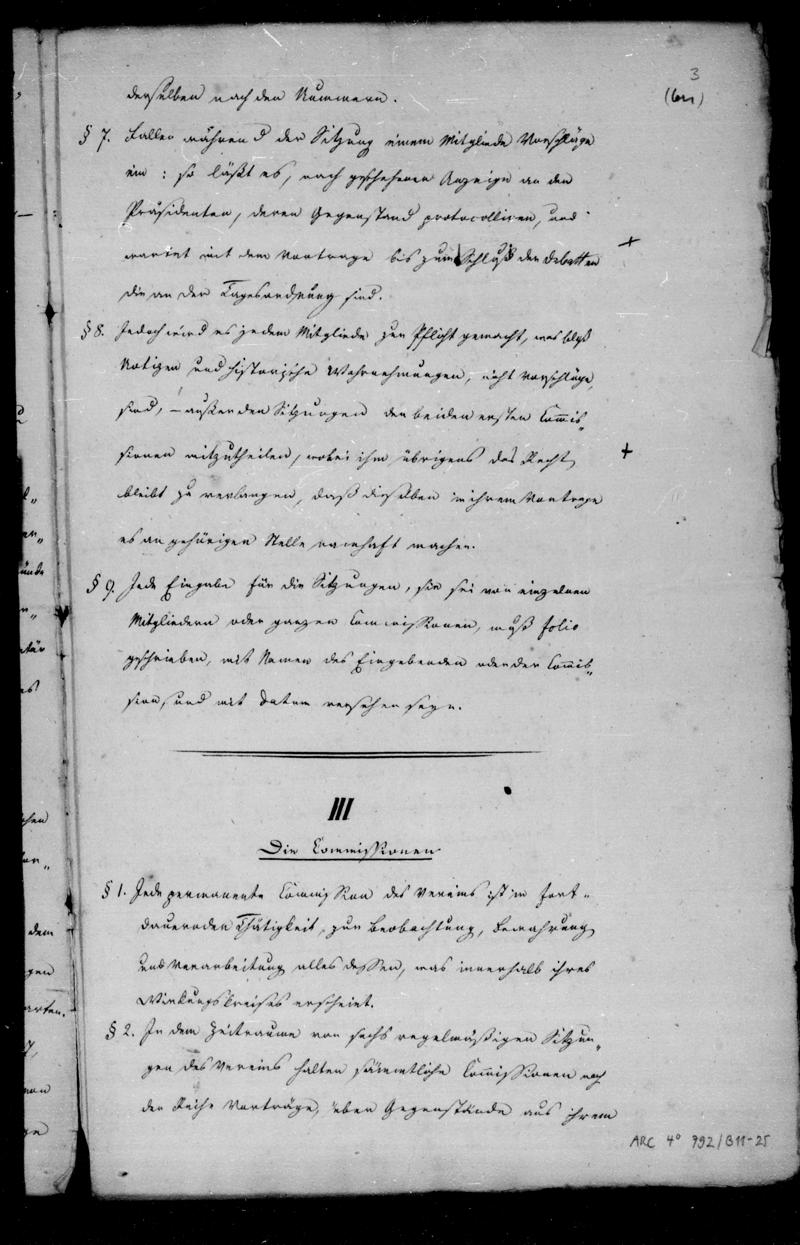 3
(6n)
derselben nach den Nummern.
§ 7. Fallen während der Sitzung einem Mitgliede Vorschläge
ein: so läßt es, nach geschehener Anzeige an den
Präsidenten, deren Gegenstand protocolliren, und
wartet mit dem Vortrage bis zum Schluß der Debatten +
die an der Tagesordnung sind.
§ 8. Jedoch wird es jedem Mitgliede zur Pflicht gemacht, was bloß
Notizen und historische Wahrnehmungen, nicht Vorschläge,
sind, – außer den Sitzungen den beiden ersten Commis„
sionen mitzutheilen, wobei ihm übrigens das Recht +
bleibt zu verlangen, daß dieselben in ihrem Vortrage
es an gehörigen Stelle namhaft machen.
§ 9. Jede Eingabe für die Sitzungen, sie sei von einzelnen
Mitgliedern oder ganzen Commissionen, muß folio
geschrieben, mit Namen des Eingebenden oder der Commis„
sion, und mit Datum versehen seyn.
III
Die Commissionen
§ 1. Jede permanente Commission des Vereins ist in fort„
dauernden Thätigkeit, zur Beobachtung, Bewahrung
und Verarbeitung alles dessen, was innerhalb ihres
Wirkungskreises erscheint.
§ 2. In dem Zeitraume von sechs regelmäßigen Sitzun„
gen des Vereins halten sämmtliche Commissionen nach
der Reihe Vorträge, über Gegenstände aus ihrem
ARC 4° 792/B11-25